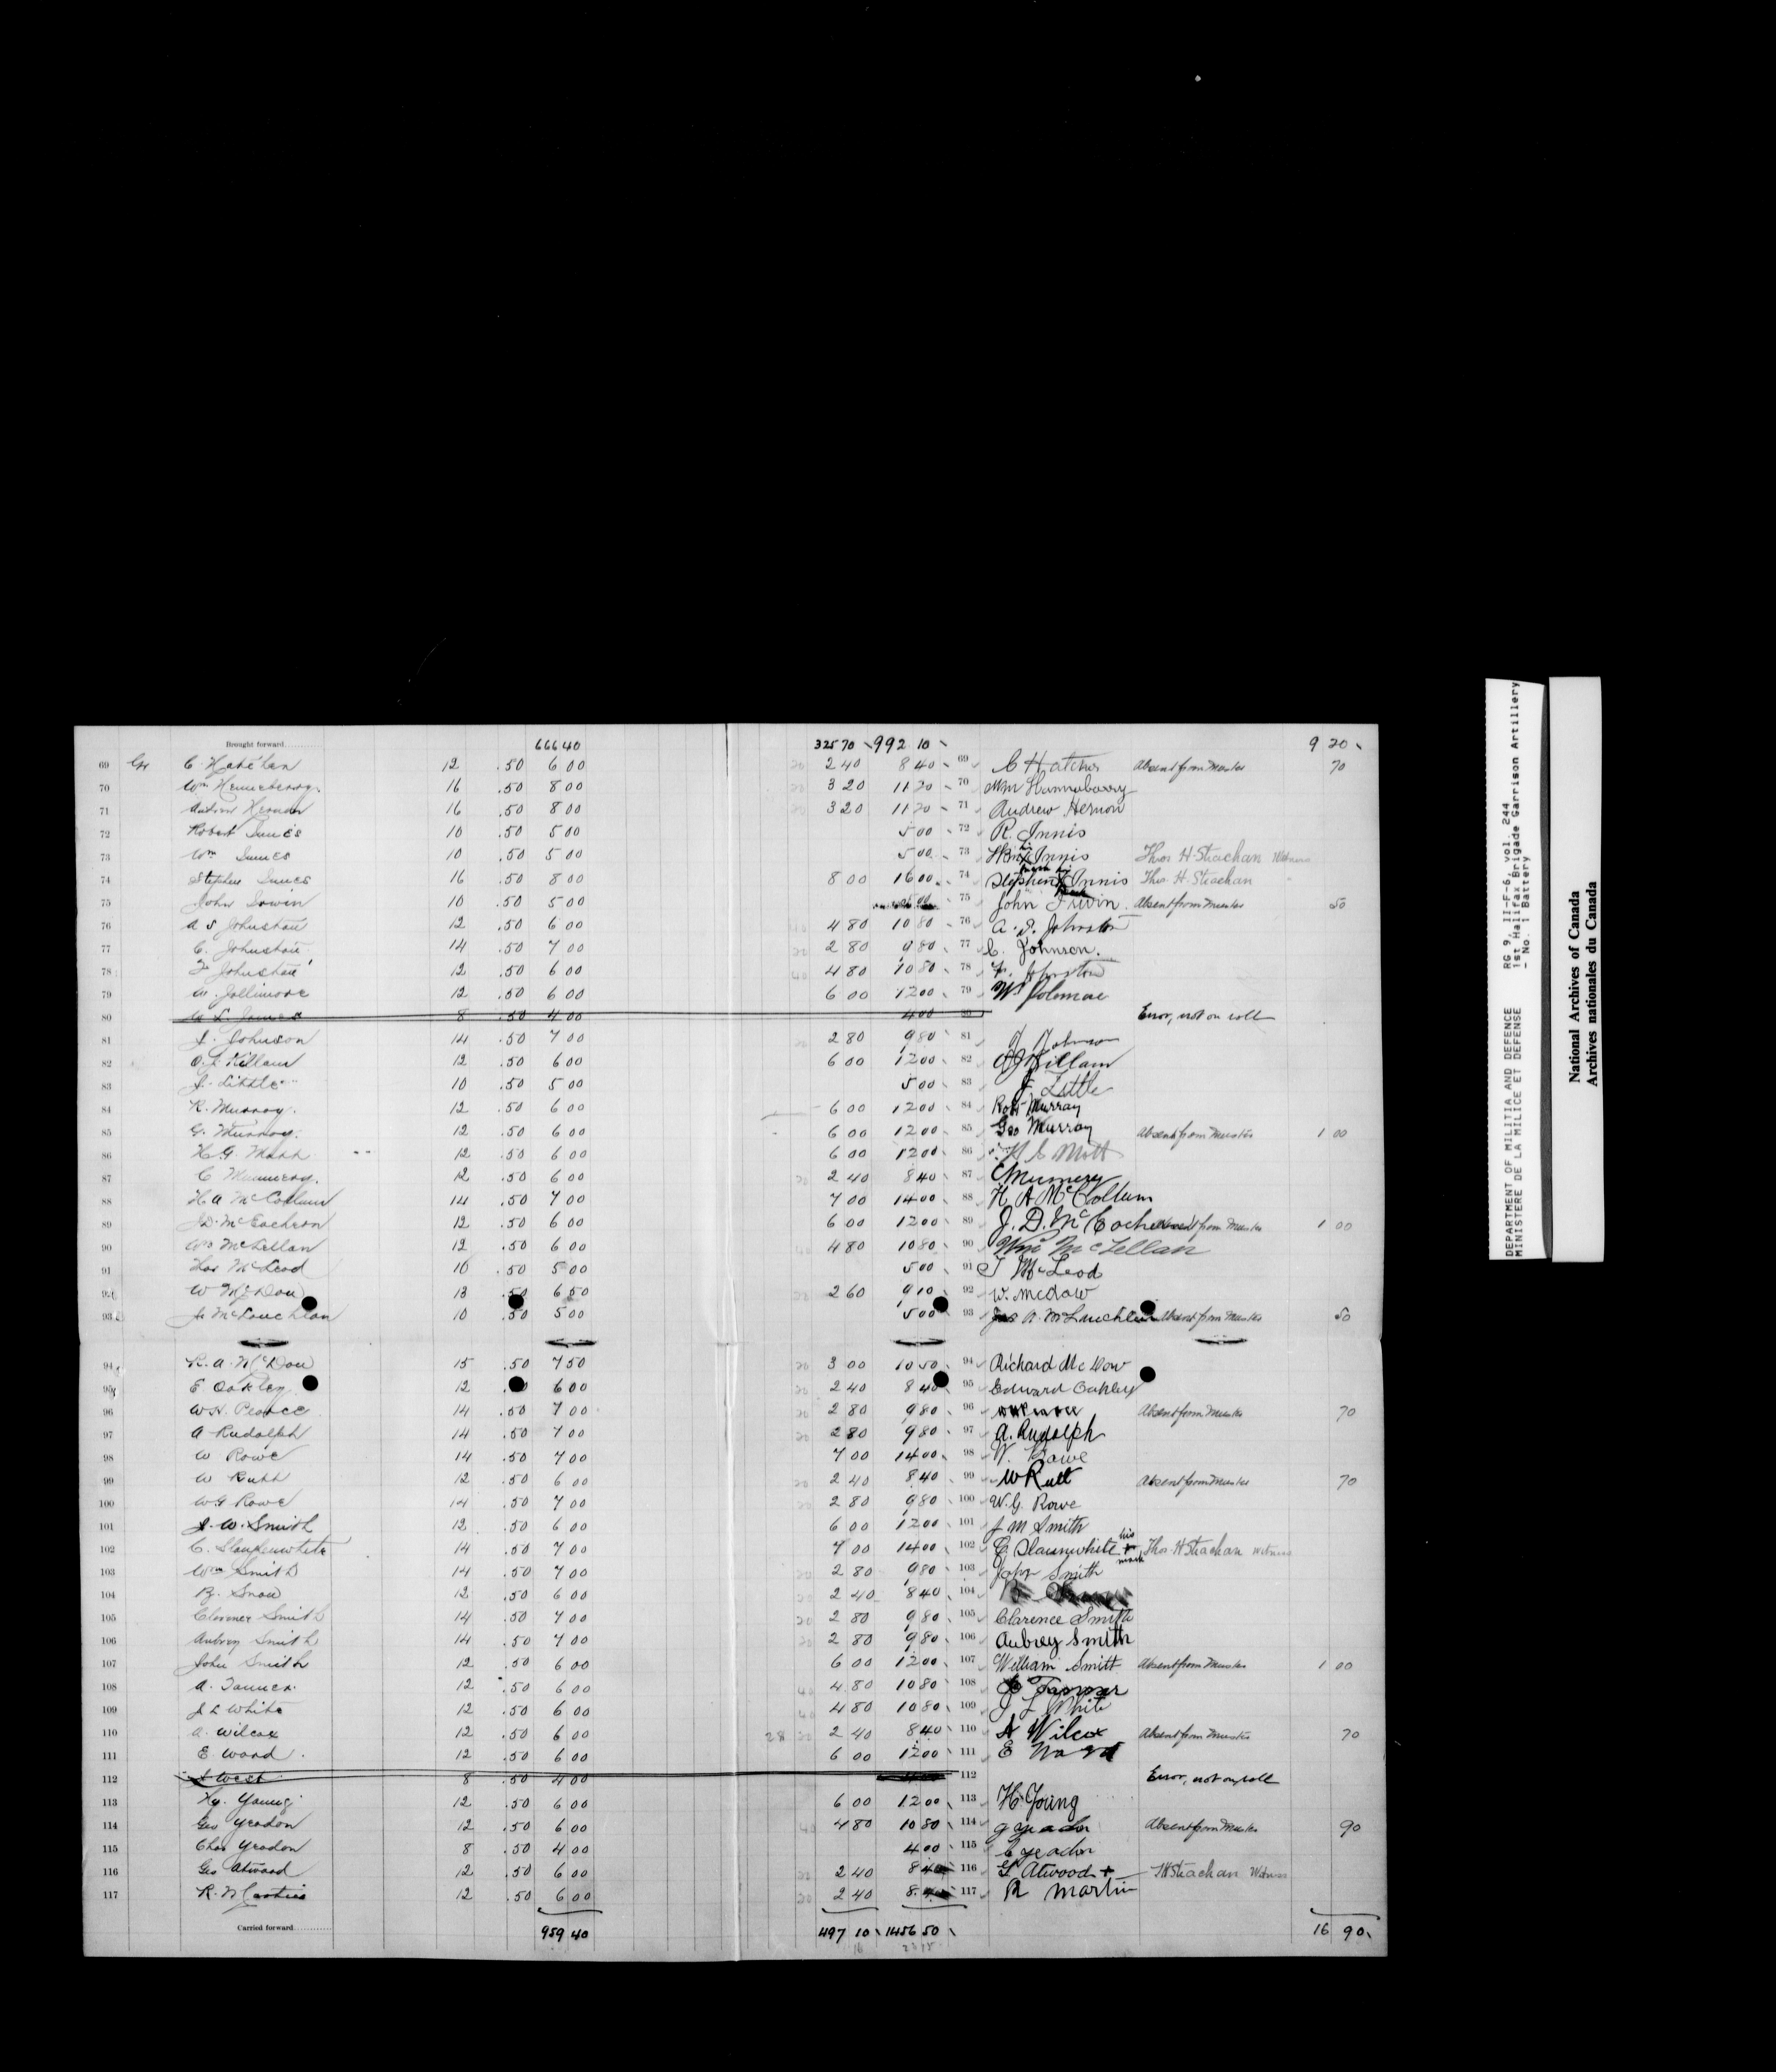 Brought forward 666 40 325 70 992 10 9 20
69 Gr C. Hatchen 12 .50 6 00 20 2 40 8 40 69 C Hatcher Absent from Muster 70
70 Wm Henneberry 16 .50 8 00 20 3 20 11 20 70 Wm Hannabarry
71 Andrew Hernon 16 .50 8 00 3 20 11 20 71 Andrew Hernon
72 Robert Innes 10 .50 5 00 5 00 72 R. Innis
73 Wm Innes 10 .50 5 00 5 00 73 Wm his X mark Innis Thos H Strachan Witness
74 Stephen Innes 16 .50 8 00 8 00 16 00 74 Stephen his X mark Innis Thos. H. Strachan "
75 John Irwin 10 .50 5 00 5 00 75 John Irwin Absent from Muster 50
76 A S Johnston 12 .50 6 00 40 4 80 10 80 76 A. S. Johnston
77 C. Johnston 14 .50 7 00 20 2 80 9 80 77 C. Johnson.
78 F. Johnston 12 .50 6 00 40 4 80 10 80 78 F. Johnston
79 W. Jollimore 12 .50 6 00 6 00 12 00 79 W Jolimore
80 W L. James 8 .50 4 00 4 00 80 Error, not on roll
81 J. Johnson 14 .50 7 00 20 2 80 9 80 81 J Johnson
82 O J Killam 12 .50 6 00 6 00 12 00 82 O J Killam
83 J. Little 10 .50 5 00 5 00 83 J. Little
84 R. Murray. 12 .50 6 00 6 00 12 00 84 Robt Murray
85 G. Murray. 12 .50 6 00 6 00 12 00 85 Geo Murray Absent from Muster 1 00
86 H. G. Mott 12 .50 6 00 6 00 12 00 86 H G Mott
87 C Mummery. 12 .50 6 00 20 2 40 8 40 87 C Mumery
88 H A McCollum 14 .50 7 00 7 00 14 00 88 H A McCollum
89 J.D. McEachron 12 .50 6 00 6 00 12 00 89 J. D. McEachern Absent from Muster 1 00
90 Wm McLellan 12 .50 6 00 40 4 80 10 80 90 Wm McLellan
91 Thos McLeod 10 .50 5 00 5 00 91 T McLeod
92 W McDow 13 .50 6 50 20 2 60 9 10 92 W. McDow
93 J. McLauchlan 10 .50 5 00 5 00 93 A. McLauchlan Absent from Muster 50
94 R. A. McDow 15 .50 7 50 20 3 00 10 50 94 Richard McDow
95 E Oakley 12 6 00 20 2 40 8 40 95 Edward Oakley
96 W.H. Pearce 14 .50 7 00 20 2 80 9 80 96 W H Pearce Absent from Muster 70
97 A Rudolph 14 .50 7 00 20 2 80 9 80 97 A. Rudolph
98 W Rowe 14 .50 7 00 7 00 14 00 98 W. Rowe
99 W Rutt 12 .50 6 00 20 2 40 8 40 99 W Rutt Absent from Muster 70
100 W.G Rowe 14 .50 7 00 20 2 80 9 80 100 W. G. Rowe
101 J. W. Smith 12 .50 6 00 6 00 12 00 101 J M Smith
102 C. Slaugenwhite 14 .50 7 00 7 00 14 00 102 C Slaunwhite his + mark Tho. H Strachan Witness
103 Wm Smith 14 .50 7 00 20 2 80 9 80 103 John Smith
104 B. Snow 12 .50 6 00 20 2 40 8 40 104
105 Clarence Smith 14 .50 7 00 20 2 80 9 80 105 Clarence Smith
106 Aubrey Smith 14 .50 7 00 20 2 80 9 80 106 Aubrey Smith
107 John Smith 12 .50 6 00 6 00 12 00 107 William Smitt Absent from Muster 1 00
108 A. Tanner. 12 .50 6 00 40 4 80 10 80 108 Tanner
109 J L White 12 .50 6 00 40 4 80 10 80 109 J L White
110 A. Wilcox 12 .50 6 00 28 20 2 40 8 40 110 A Wilcox Absent from Muster 70
111 E. Ward. 12 .50 6 00 6 00 12 00 111 E Ward
112 J West 8 .50 4 00 112 Error, not on roll
113 Hy. Young 12 .50 6 00 6 00 12 00 113 H. Young
114 Geo Yeadon 12 .50 6 00 40 4 80 10 80 114 G Yeadon Absent from Muster 90
115 Chas Yeadon 8 .50 4 00 4 00 115 C Yeadon
116 Geo Atwood 12 .50 6 00 20 2 40 8 40 116 G Atwood + TH Strachan Witness
117 R. Martin 12 .50 6 00 20 2 40 8. 117 R Martin
Carried forward 959 40 497 10 1456 50 16 90
DEPARTMENT OF MILITIA AND DEFENCE RG 9, II-F-6, vol. 244
MINISTERE DE LA MILICE ET DEFENSE 1st Halifax Brigade Garrison Artillery
- No. 1 Battery
National Archives of Canada
Archives nationales du Canada